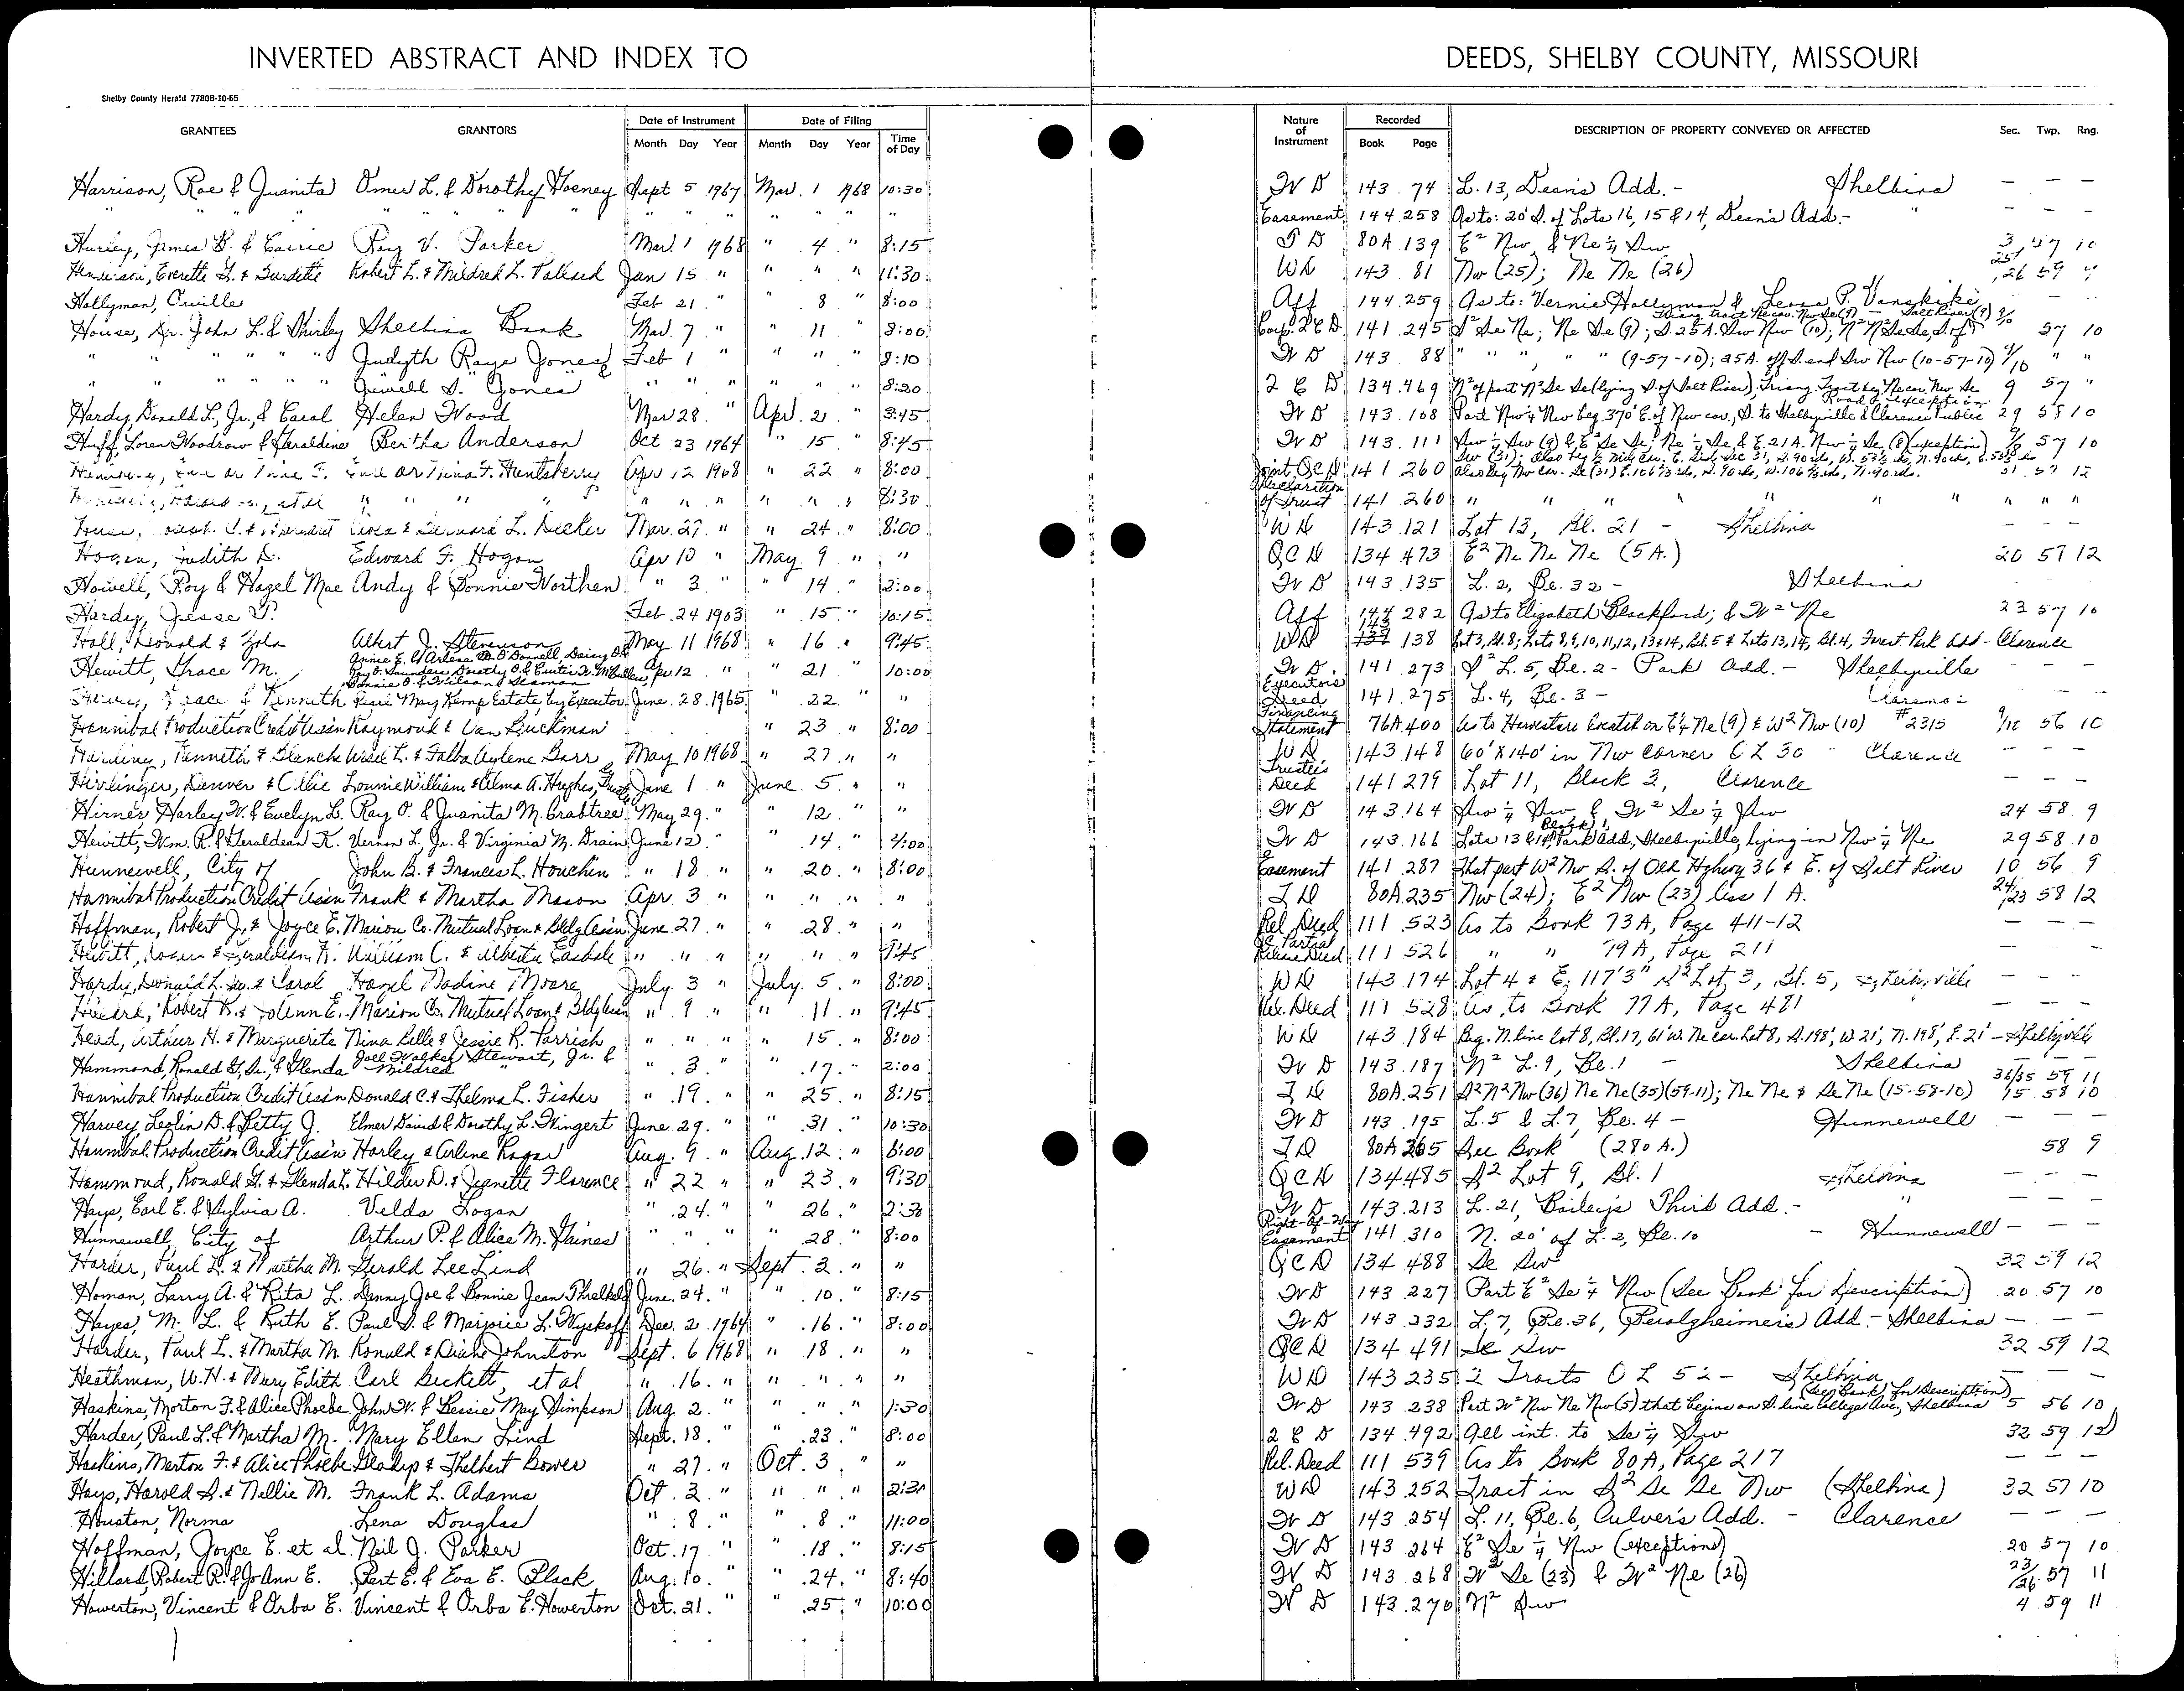 INVERTED ABSTRACT AND INDEX TO DEEDS, SHELBY COUNTY, MISSOURI
Shelby County Herald 7780B-10-65
GRANTEES GRANTORS Date of Instrument Date of Filing Nature of Instrument Recorded DESCRIPTION OF PROPERTY CONVEYED OR AFFECTED Sec. Twp. Rng.
Month Day Year Month Day Year Time of Day Book Page
Harrison, Rae & Juanita Omer L. & Dorothy Hosney Sept 5 1967 Mar. 1 1968 10:30 W D 143 74 L. 13, Dean's Add. - Shelbina — — —
" " " " " " " " " " " " Easement 144 258 As to: 20' S. of Lots 16, 15 & 14, Dean's Add. - " — — —
Hurley, James B. & Roy V. Parker Mar. 1 1968 " 4 " 8:15 80A 139 E² Nw, & Ne ¼ Sw 3 57 10
Henderson, Everette & Burdette Robert L. & Mildred L. Pollard Jan 15 " " " " 11:30 WD 143 81 Nw (25); Ne Ne (26) 25/26 59 9
Hollyman, Orville Feb 21 " " 8 " 8:00 Aff 144 259 As to: Vernie Hollyman & Leona P. Vanskike — —
House, Dr. John L. & Shirley Shelbina Bank Mar. 7 " " 11 " 8:00 Corp. Q C D 141 245 S² Se Ne; Ne Se (9); S 25 A. Sw Nw (10); N² N² Se Se, S of Triang. tract Ne cor. Nw Se (9) — Salt River (9) 9/10 57 10
" " " " " " Judyth Raye Jones Feb 1 " " " " 8:10 W D 143 88 " " " " " (9-57-10); 25 A. off S. end Sw Nw (10-57-10) 9/10 " "
" " " " " " Jewell S. Jones " " " " " " 8:20 Q C D 134 469 N² of part N² Se Se (lying S. of Salt River); Triang. Tract beg. Ne cor. Nw Se 9 57 "
Hardy, Donald L., Jr., & Carol Helen Wood Mar 28 " Apr. 2 " 3:45 W D 143 108 Part Nw ¼ Nw beg. 370' E. of Nw cor., S. to Shelbyville & Clarence Public Road & exception 29 58 10
Huff, Loren Woodrow & Geraldine Bertha Anderson Oct 23 1964 " 15 " 8:45 W D 143 111 Sw ¼ Sw (9) & E² Se Se; Ne ¼ Se, & E. 21 A. Nw ¼ Se, (8) (exception) 8/9 57 10
Earl or Nina F. Hunteberry Apr 12 1968 " 22 " 8:00 Joint Q C D 141 260 also beg. Nw cor. Se (31) E. 106⅔ rds, S. 90 rds, W. 106⅔ rds, N. 90 rds. 31 57 12
" " " " " " " " " " 8:30 Declaration of Trust 141 260 " " " " " " " " "
Bernard L. Decker Mar. 27 " " 24 " 8:00 WD 143 121 Lot 13, Bl. 21 - Shelbina — — —
Hogan, Judith D. Edward F. Hogan Apr 10 " May 9 " " Q C D 134 473 E² Ne Ne Ne (5 A.) 20 57 12
Howell, Roy & Hazel Mae Andy & Bonnie Worthen " 3 " " 14 " 2:00 W D 143 135 L. 2, Bl. 32 - Shelbina
Hardy, Jesse T. Feb. 24 1903 " 15 " 10:15 Aff 144 282 As to Elizabeth Blackford; & W² Ne 23 57 10
Hall, Donald & Zola Albert J. Stevenson May 11 1968 " 16 " 9:45 WD 143 138 Lot 3, Bl. 8; Lots 8, 9, 10, 11, 12, 13 & 14, Bl. 5 & Lots 13, 14, Bl. 4, Forest Park Add - Clarence
Hewitt, Grace M. Apr 12 " " 21 " 10:00 W D 141 273 S² L. 5, Bl. 2 - Park Add. - Shelbyville
Grace & Kenneth Pearl May Kemp Estate, by Executor June 28 1965 " 22 " " Executor's Deed 141 275 L. 4, Bl. 3 - Clarence
Hannibal Production Credit Ass'n Raymond & Van Buckman " 23 " 8:00 Financing Statement 76A 400 As to Harvestore located on E ½ Ne (9) & W² Nw (10) #2315 9/10 56 10
Harding, Kenneth & Blanche L. & Barr May 10 1968 " 27 " " WD 143 148 60' X 140' in Nw corner O L 30 - Clarence — — —
Hirlinger, Denver & Ollie Lonnie William & Alma A. Hughes, June 1 " June 5 " " Trustee's Deed 141 279 Lot 11, Block 2, Clarence — —
Hirner, Harley W. & Evelyn L. Ray O. & Juanita M. Crabtree May 29 " " 12 " " W D 143 164 Sw ¼ Sw & W² Se ¼ Sw 24 58 9
Hewitt, Wm. R. & Geraldean K. Vernon L., Jr. & Virginia M. Drain June 12 " " 14 " 4:00 W D 143 166 Lots 13 & 14, Block 1, Park Add, Shelbyville, lying in Nw ¼ Ne 29 58 10
Hunnewell, City of John B. & Frances L. Houchin " 18 " " 20 " 8:00 Easement 141 287 That part W² Nw S. of Old Highway 36 & E. of Salt River 10 56 9
Hannibal Production Credit Ass'n Frank & Martha Mason Apr. 3 " " " " " T D 80A 235 Nw (24); E² Nw (23) less 1 A. 24/23 58 12
Hoffman, Robert J. & Joyce E. Marion Co. Mutual Loan & Bldg Ass'n June 27 " " 28 " " Rel Deed 111 523 As to Book 73A, Page 411-12 — — —
Hewitt, & Geraldean K. William C. & Alberta " " " " " " 9:45 Partial Release Deed 111 526 " " 79A, Page 211
Hardy, Donald L. Jr. & Carol Hazel Nadine Moore July 3 " July 5 " 8:00 WD 143 174 Lot 4 & E. 117'3" S² Lot 3, Bl. 5, Shelbyville
Robert R. & JoAnn E. Marion Co. Mutual Loan & Bldg Ass'n " 9 " " 11 " 9:45 Rel. Deed 111 528 As to Book 77A, Page 481 — — —
Head, Arthur H. & Marguerite Nina Belle & Jessie R. Parrish " " " " 15 " 8:00 WD 143 184 Beg. N. line Lot 8, Bl. 17, 61' W. Ne cor. Lot 8, S. 198', W. 21', N. 198', E. 21' - Shelbyville
Hammond, Ronald G., Sr., & Glenda Joel Walker Stewart, Jr. & Mildred " " 3 " " 17 " 2:00 W D 143 187 N² L. 9, Bl. 1 - Shelbina — — —
Hannibal Production Credit Ass'n Donald C. & Thelma L. Fisher " 19 " " 25 " 8:15 T D 80A 251 S² N² Nw (36) Ne Ne (35) (59-11); Ne Ne & Se Ne (15-58-10) 36/35 59 11 15 58 10
Harvey Leslin D. & Betty J. Elmer David & Dorothy L. Wingert June 29 " " 31 " 10:30 W D 143 195 L. 5 & L. 7, Bl. 4 - Hunnewell — — —
Hannibal Production Credit Ass'n Harley & Arlene Ragar Aug. 9 " Aug. 12 " 8:00 T D 80A 265 See Book (280 A.) 58 9
Hammond, Ronald G. & Glenda L. Hilda D. & Jeanette Florence " 22 " " 23 " 9:30 Q C D 134 485 S² Lot 9, Bl. 1 Shelbina — — —
Hays, Earl E. & Sylvia A. Velda Logan " 24 " " 26 " 2:30 W D 143 213 L. 21, Bailey's Third Add. - " — — —
Hunnewell, City of Arthur P. & Alice M. Gaines " " " " 28 " 8:00 Right-Of-Way Easement 141 310 N. 20' of L. 2, Bl. 10 - Hunnewell — — —
Harder, Paul L. & Martha M. Gerald Lee Lind " 26 " Sept. 3 " " Q C D 134 488 Se Sw 32 59 12
Homan, Larry A. & Rita L. Danny Joe & Bonnie Jean Threlkeld June 24 " " 10 " 8:15 W D 143 227 Part E² Se ¼ Nw (See Book for Description) 20 57 10
Hayes, M. L. & Ruth E. Paul S. & Marjorie L. Wyckoff Dec. 2 1964 " 16 " 8:00 W D 143 232 L. 7, Bl. 36, Berolzheimer's Add. - Shelbina — — —
Harder, Paul L. & Martha M. Ronald & Diane Johnston Sept. 6 1968 " 18 " " Q C D 134 491 Se Sw 32 59 12
Heathman, W. H. & Mary Edith Carl Beckett, et al " 16 " " " " " WD 143 235 2 Tracts O L 52 - Shelbina — —
Haskins, Morton F. & Alice Phoebe John W. & Bessie May Simpson Aug 2 " " " " 1:30 W D 143 238 Part W² Nw Ne Nw (5) that begins on S. line College Ave, Shelbina (See Book for Description) 5 56 10
Harder, Paul L. & Martha M. Mary Ellen Lind Sept. 18 " " 23 " 8:00 Q C D 134 492 All int. to Se ¼ Sw 32 59 12
Haskins, Merton F. & Alice Phoebe Gladys & Thelbert Bower " 27 " Oct. 3 " " Rel. Deed 111 539 As to Book 80A, Page 217 — — —
Hays, Harold S. & Nellie M. Frank L. Adams Oct. 3 " " " " 2:30 WD 143 252 Tract in S² Se Se Nw (Shelbina) 32 57 10
Houston, Norma Lena Douglas " 8 " " 8 " 11:00 W D 143 254 L. 11, Bl. 6, Culver's Add. - Clarence — — —
Hoffman, Joyce E. et al. Neil J. Parker Oct. 17 " " 18 " 8:15 W D 143 264 E² Se ¼ Nw (exceptions) 20 57 10
Hillard, Robert R. & JoAnn E. Bert E. & Eva E. Black Aug. 10 " " 24 " 8:40 W D 143 268 W² Se (23) & W² Ne (26) 23/26 57 11
Howerton, Vincent & Orba E. Vincent & Orba E. Howerton Oct. 21 " " 25 " 10:00 W D 143 270 N² Sw 4 59 11